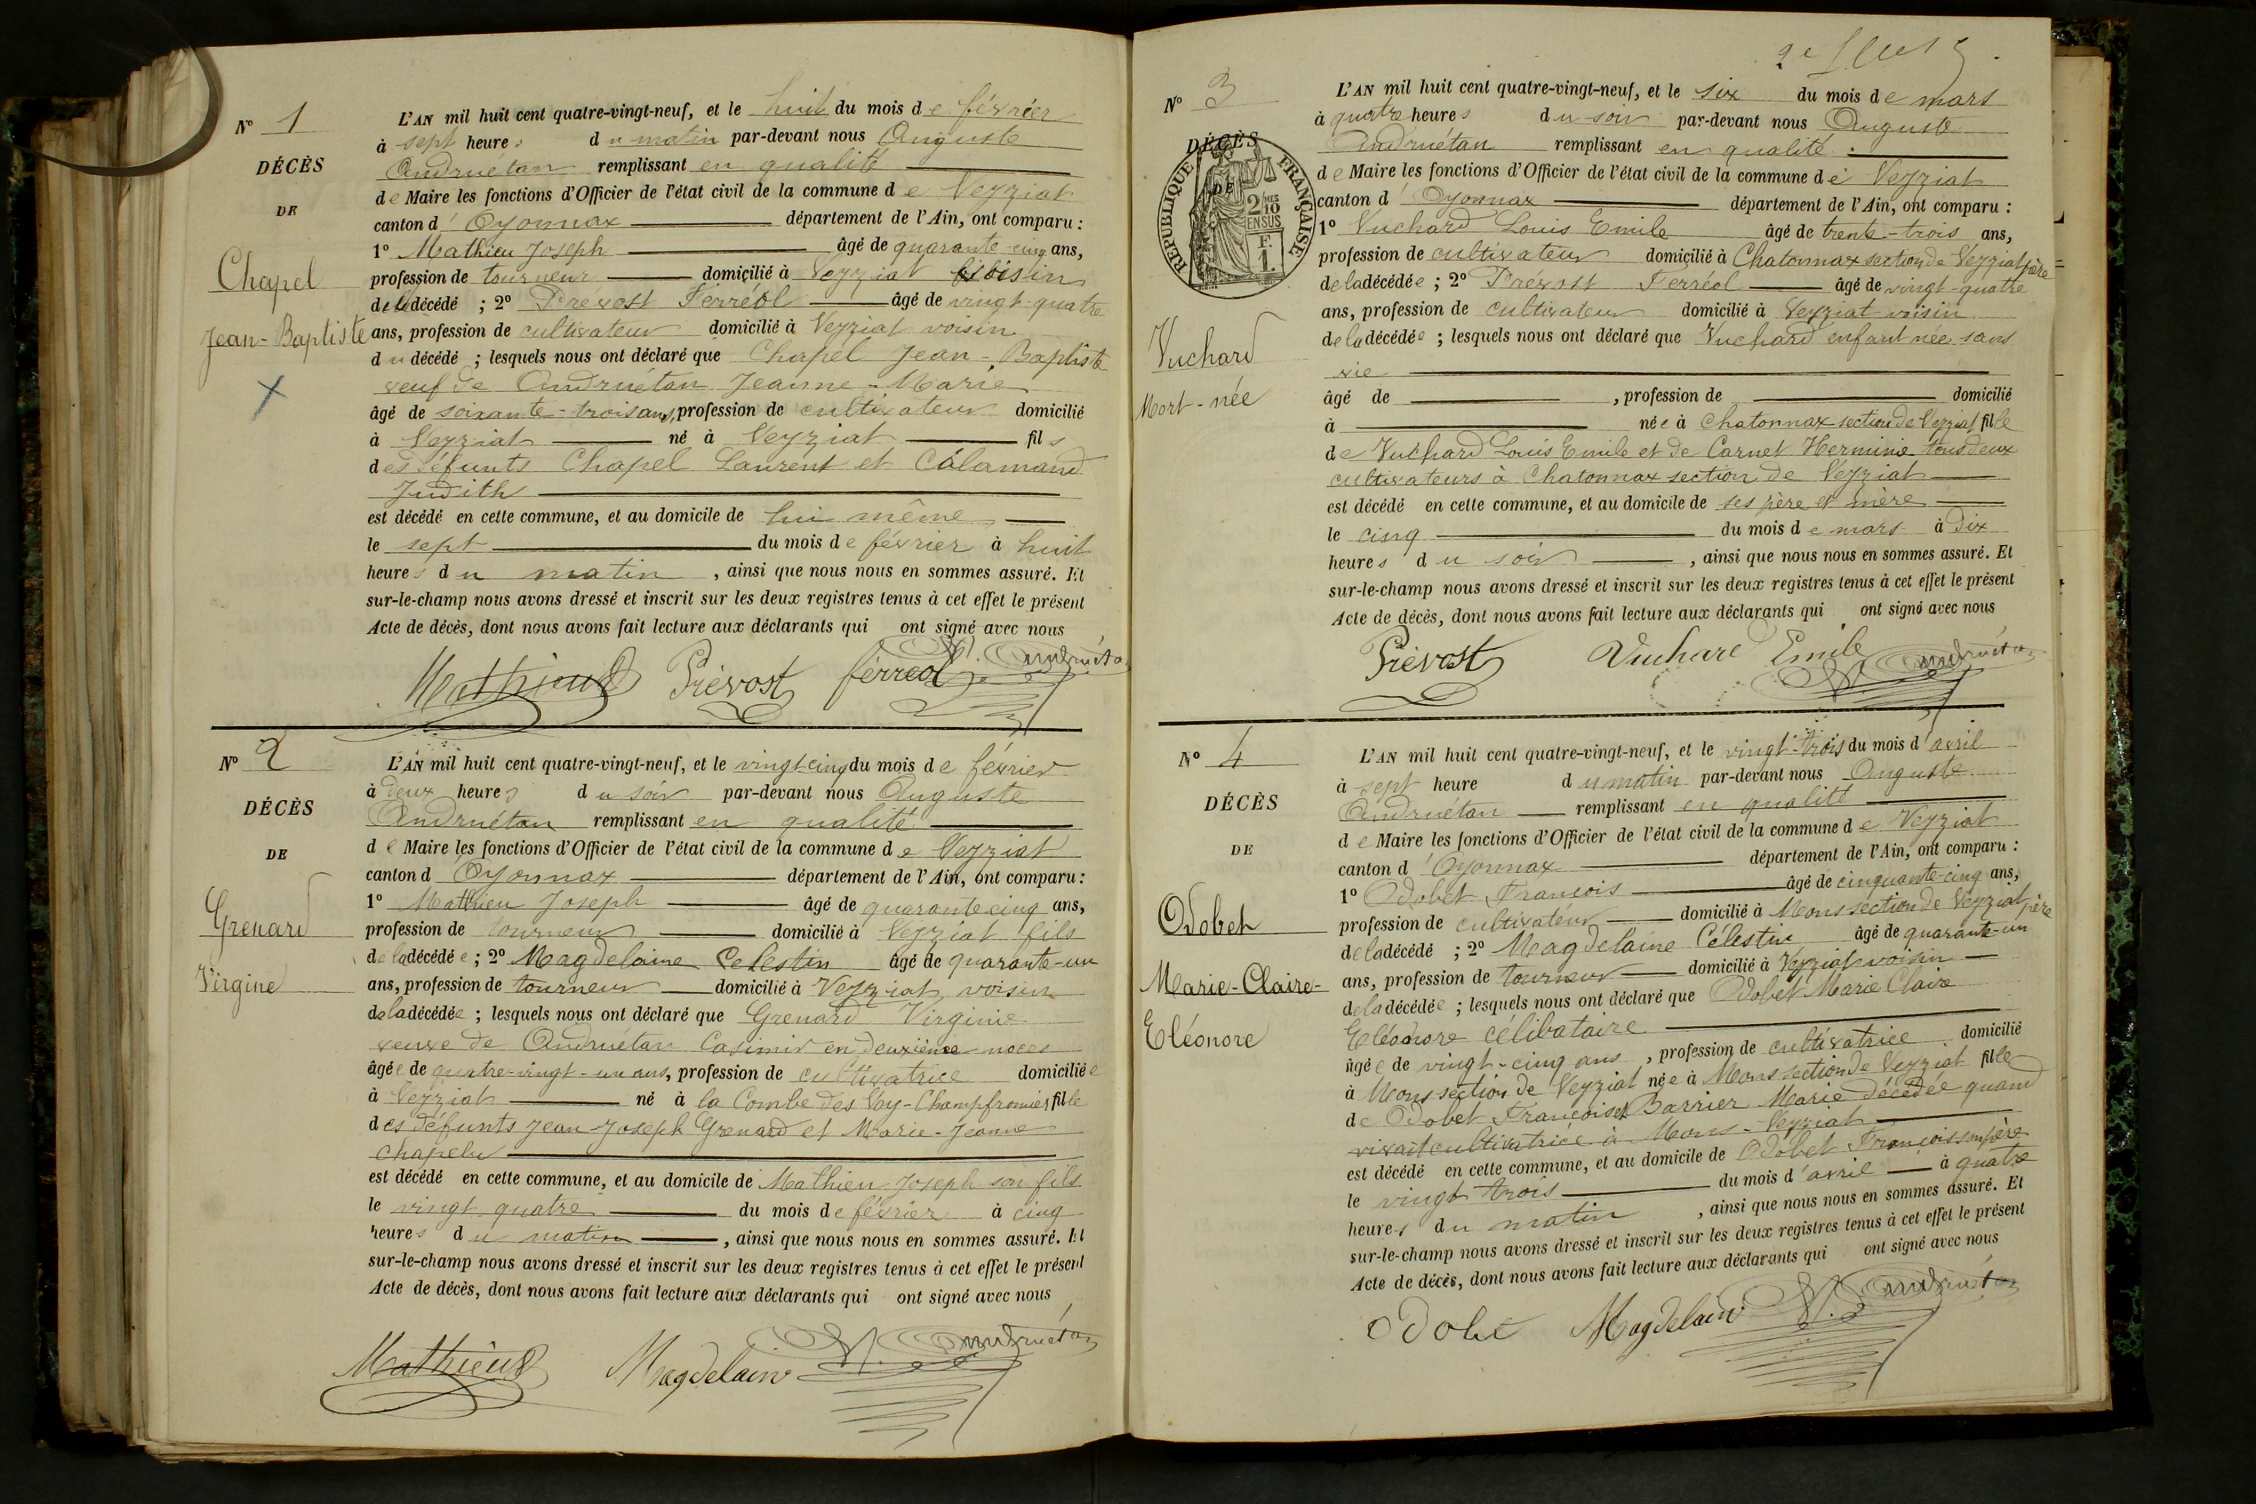 N° 1
DÉCÈS
DE
Chapel
Jean-Baptiste
L'AN mil huit cent quatre-vingt-neuf, et le huit du mois de février
à sept heures du matin par-devant nous Auguste
Andruétan remplissant en qualité
de Maire les fonctions d'Officier de l'état civil de la commune de Veyziat
canton d'Oyonnax département de l'Ain, ont comparu :
1° Mathieu Joseph âgé de quarante-cinq ans,
profession de tourneur domicilié à Veyziat voisin
du décédé ; 2° Prevost Férréol âgé de vingt-quatre
ans, profession de cultivateur domicilié à Veyziat voisin
du décédé ; lesquels nous ont déclaré que Chapel Jean-Baptiste
veuf de Andruétan Jeanne-Marie
âgé de soixante-trois ans, profession de cultivateur domicilié
à Veyziat né à Veyziat fils
des défunts Chapel Laurent et Calamand
Judith
est décédé en cette commune, et au domicile de lui même
le sept du mois de février à huit
heures du matin , ainsi que nous nous en sommes assuré. Et
sur-le-champ nous avons dressé et inscrit sur les deux registres tenus à cet effet le présent
Acte de décès, dont nous avons fait lecture aux déclarants qui ont signé avec nous
Mathieu Prévost férréol Andruétan
N° 2
DÉCÈS
DE
Grenard
Virginie
L'AN mil huit cent quatre-vingt-neuf, et le vingt-cinq du mois de février
à deux heures du soir par-devant nous Auguste
Andruétan remplissant en qualité
de Maire les fonctions d'Officier de l'état civil de la commune de Veyziat
canton d'Oyonnax département de l'Ain, ont comparu :
1° Mathieu Joseph âgé de quarante cinq ans,
profession de tourneur domicilié à Veyziat fils
de la décédée ; 2° Magdelaine Celestin âgé de quarante-un
ans, profession de tourneur domicilié à Veyziat voisin
de la décédée ; lesquels nous ont déclaré que Grenard Virginie
veuve de Andruétan Casimir en deuxième noces
âgée de quatre-vingt-un ans, profession de cultivatrice domiciliée
à Veyziat né à la Combe des Voy-Champfromier fille
des défunts Jean Joseph Grenard et Marie-Jeanne
Chapelu
est décédé en cette commune, et au domicile de Mathieu Joseph son fils
le vingt quatre du mois de février à cinq
heures du matin , ainsi que nous nous en sommes assuré. Et
sur-le-champ nous avons dressé et inscrit sur les deux registres tenus à cet effet le présent
Acte de décès, dont nous avons fait lecture aux déclarants qui ont signé avec nous
Mathieu Magdelain Andruétan
N° 3
DÉCÈS
DE
RÉPUBLIQUE FRANÇAISE
2 10
EN SUS
F.
1.
Vuchard
Mort-née
L'AN mil huit cent quatre-vingt-neuf, et le six du mois de mars
à quatre heures du soir par-devant nous Auguste
Andruétan remplissant en qualité
de Maire les fonctions d'Officier de l'état civil de la commune de Veyziat
canton d'Oyonnax département de l'Ain, ont comparu :
1° Vuchard Louis Emile âgé de trente-trois ans,
profession de cultivateur domicilié à Chatonnax section de Veyziat père
de la décédée ; 2° Prévost Ferréol âgé de vingt-quatre
ans, profession de cultivateur domicilié à Veyziat voisin
de la décédée ; lesquels nous ont déclaré que Vuchard enfant née sans
vie
âgé de , profession de domicilié
à née à Chatonnax section de Veyziat fille
de Vuchard Louis Emile et de Carnet Herminie tous deux
cultivateurs à Chatonnax section de Veyziat
est décédé en cette commune, et au domicile de ses père et mère
le cinq du mois de mars à dix
heures du soir , ainsi que nous nous en sommes assuré. Et
sur-le-champ nous avons dressé et inscrit sur les deux registres tenus à cet effet le présent
Acte de décès, dont nous avons fait lecture aux déclarants qui ont signé avec nous
Prévost Vuchard Emile Andruétan
N° 4
DÉCÈS
DE
Odobet
Marie-Claire-
Eléonore
L'AN mil huit cent quatre-vingt-neuf, et le vingt-trois du mois d'avril
à sept heure du matin par-devant nous Auguste
Andruétan remplissant en qualité
de Maire les fonctions d'Officier de l'état civil de la commune de Veyziat
canton d'Oyonnax département de l'Ain, ont comparu :
1° Odobet François âgé de cinquante-cinq ans,
profession de cultivateur domicilié à Mons section de Veyziat père
de la décédé ; 2° Magdelaine Célestin âgé de quarante-un
ans, profession de tourneur domicilié à Veyziat voisin
de la décédée ; lesquels nous ont déclaré que Odobet Marie Claire
Eléonore célibataire
âgée de vingt-cinq ans , profession de cultivatrice domicilié
à Mons section de Veyziat née à Mons section de Veyziat fille
de Odobet François et Barrier Marie décédée quand
vivait cultivatrice à Mons-Veyziat
est décédé en cette commune, et au domicile de Odobet François son père
le vingt trois du mois d'avril à quatre
heures du matin , ainsi que nous nous en sommes assuré. Et
sur-le-champ nous avons dressé et inscrit sur les deux registres tenus à cet effet le présent
Acte de décès, dont nous avons fait lecture aux déclarants qui ont signé avec nous
Odobet Magdelain Andruétan